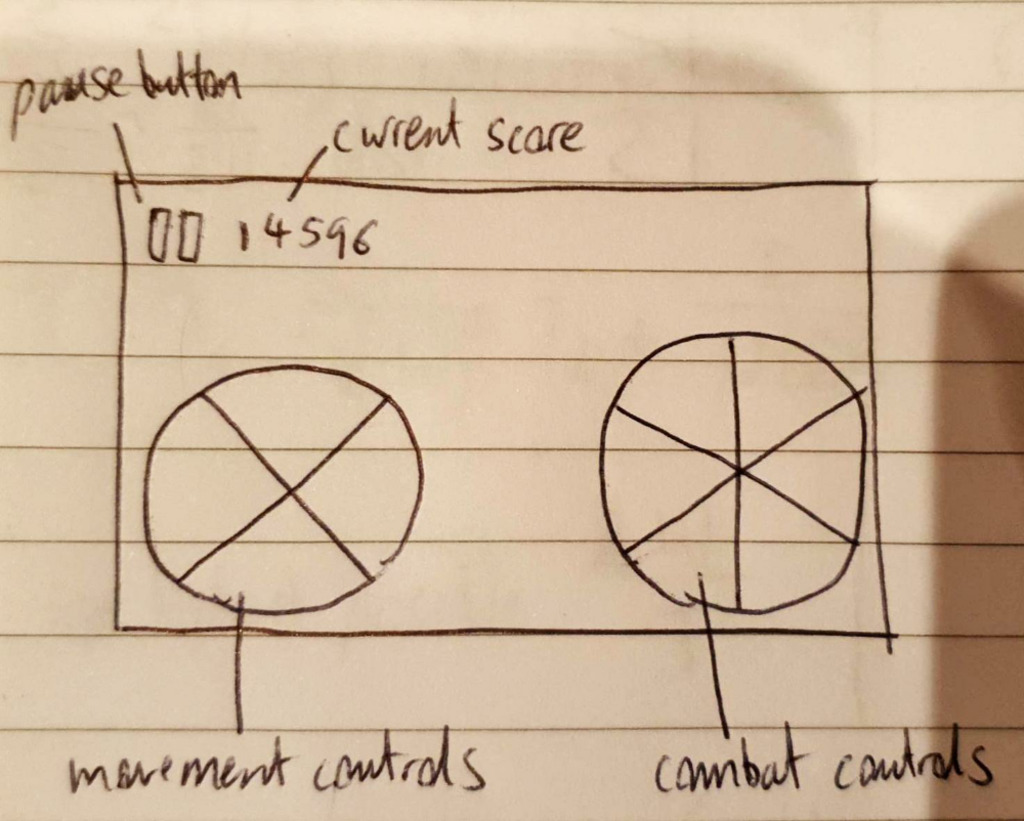 pause button
current score
14596
movement controls
combat controls